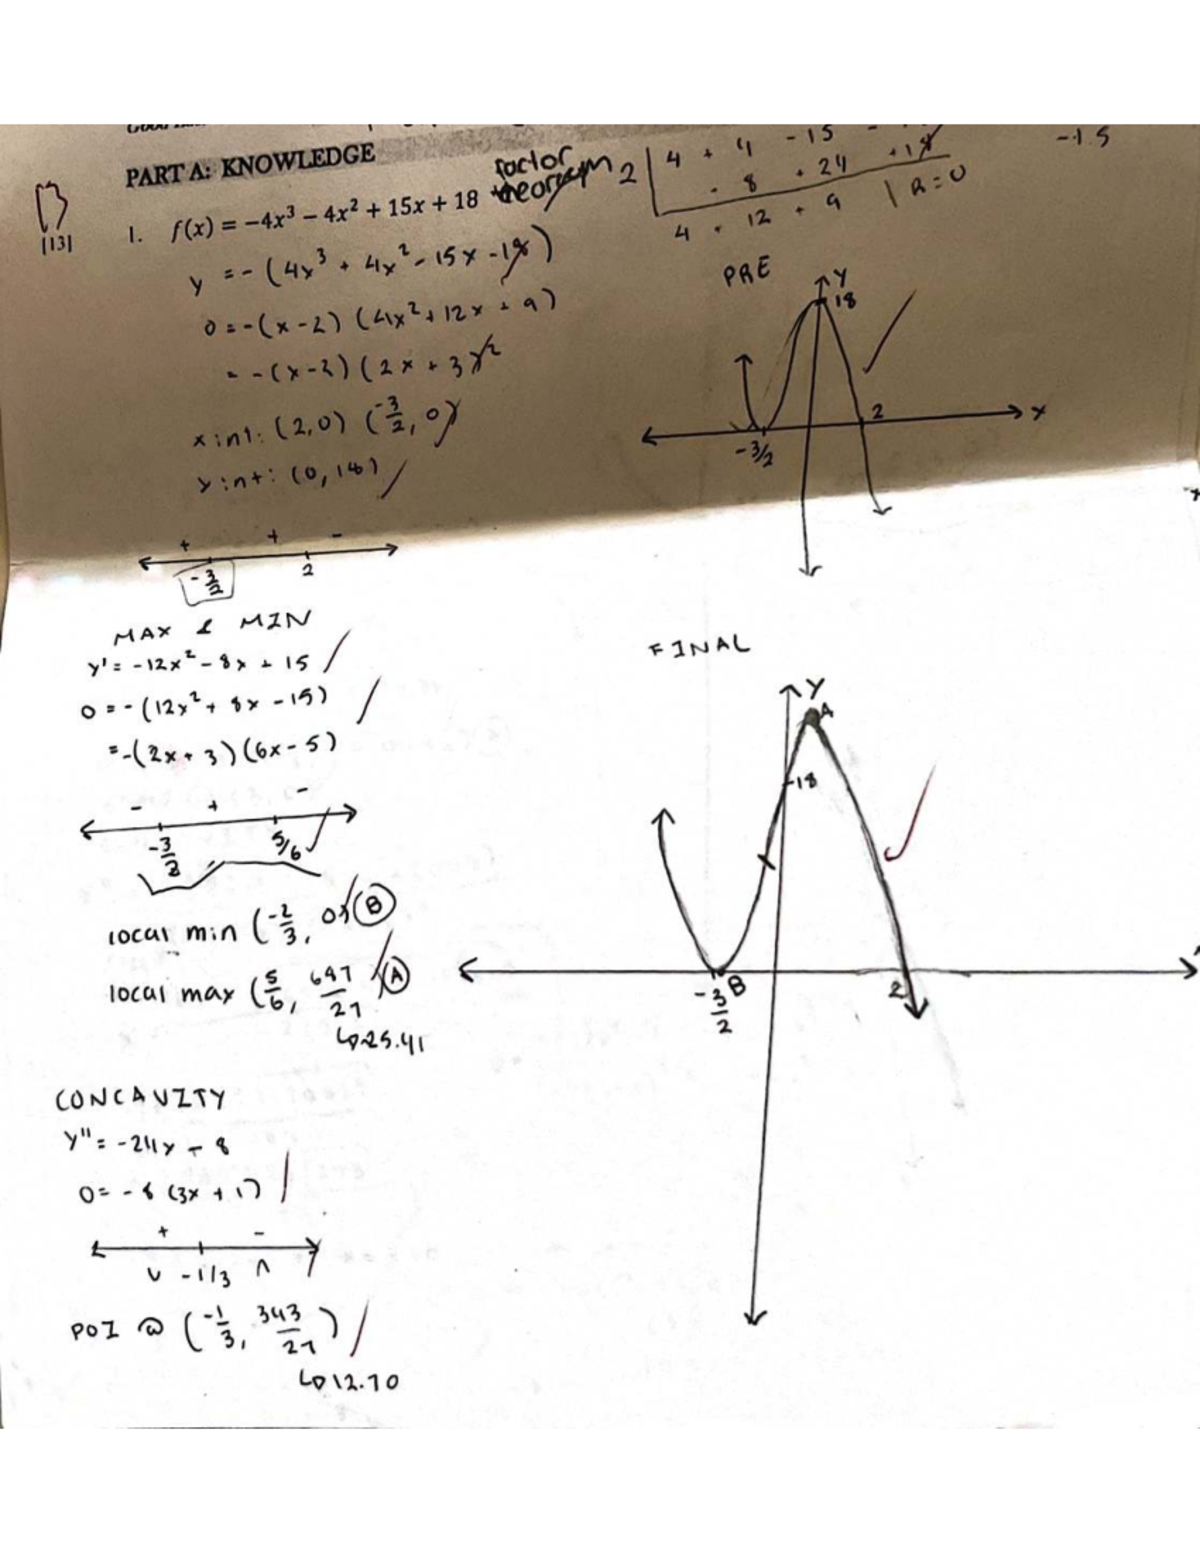 PART A: KNOWLEDGE
13
[13]
1. f(x) = -4x³ - 4x² + 15x + 18
factor
theoream
2 | 4 + 4 - 15
- 8 + 24 + 18
4 + 12 + 9 | R=0
-1.5
y = -(4x³ + 4x² - 15x - 18)
0 = -(x-2)(4x² + 12x + 9)
= -(x-2)(2x+3)²
x int: (2,0) (-3/2, 0)
y int: (0,18)
+ + -
-3/2 2
PRE
Y
18
2
X
-3/2
MAX & MIN
y' = -12x² - 8x + 15
0 = -(12x² + 8x - 15)
= -(2x+3)(6x-5)
- + -
-3/2 5/6
local min (-2/3, 0) B
local max (5/6, 647/27) A
↳25.41
CONCAVITY
y" = -24x - 8
0 = -8(3x+1)
+ -
∪ -1/3 ∩
POI @ (-1/3, 343/27)
↳12.70
FINAL
Y
A
18
-3/2 B
2